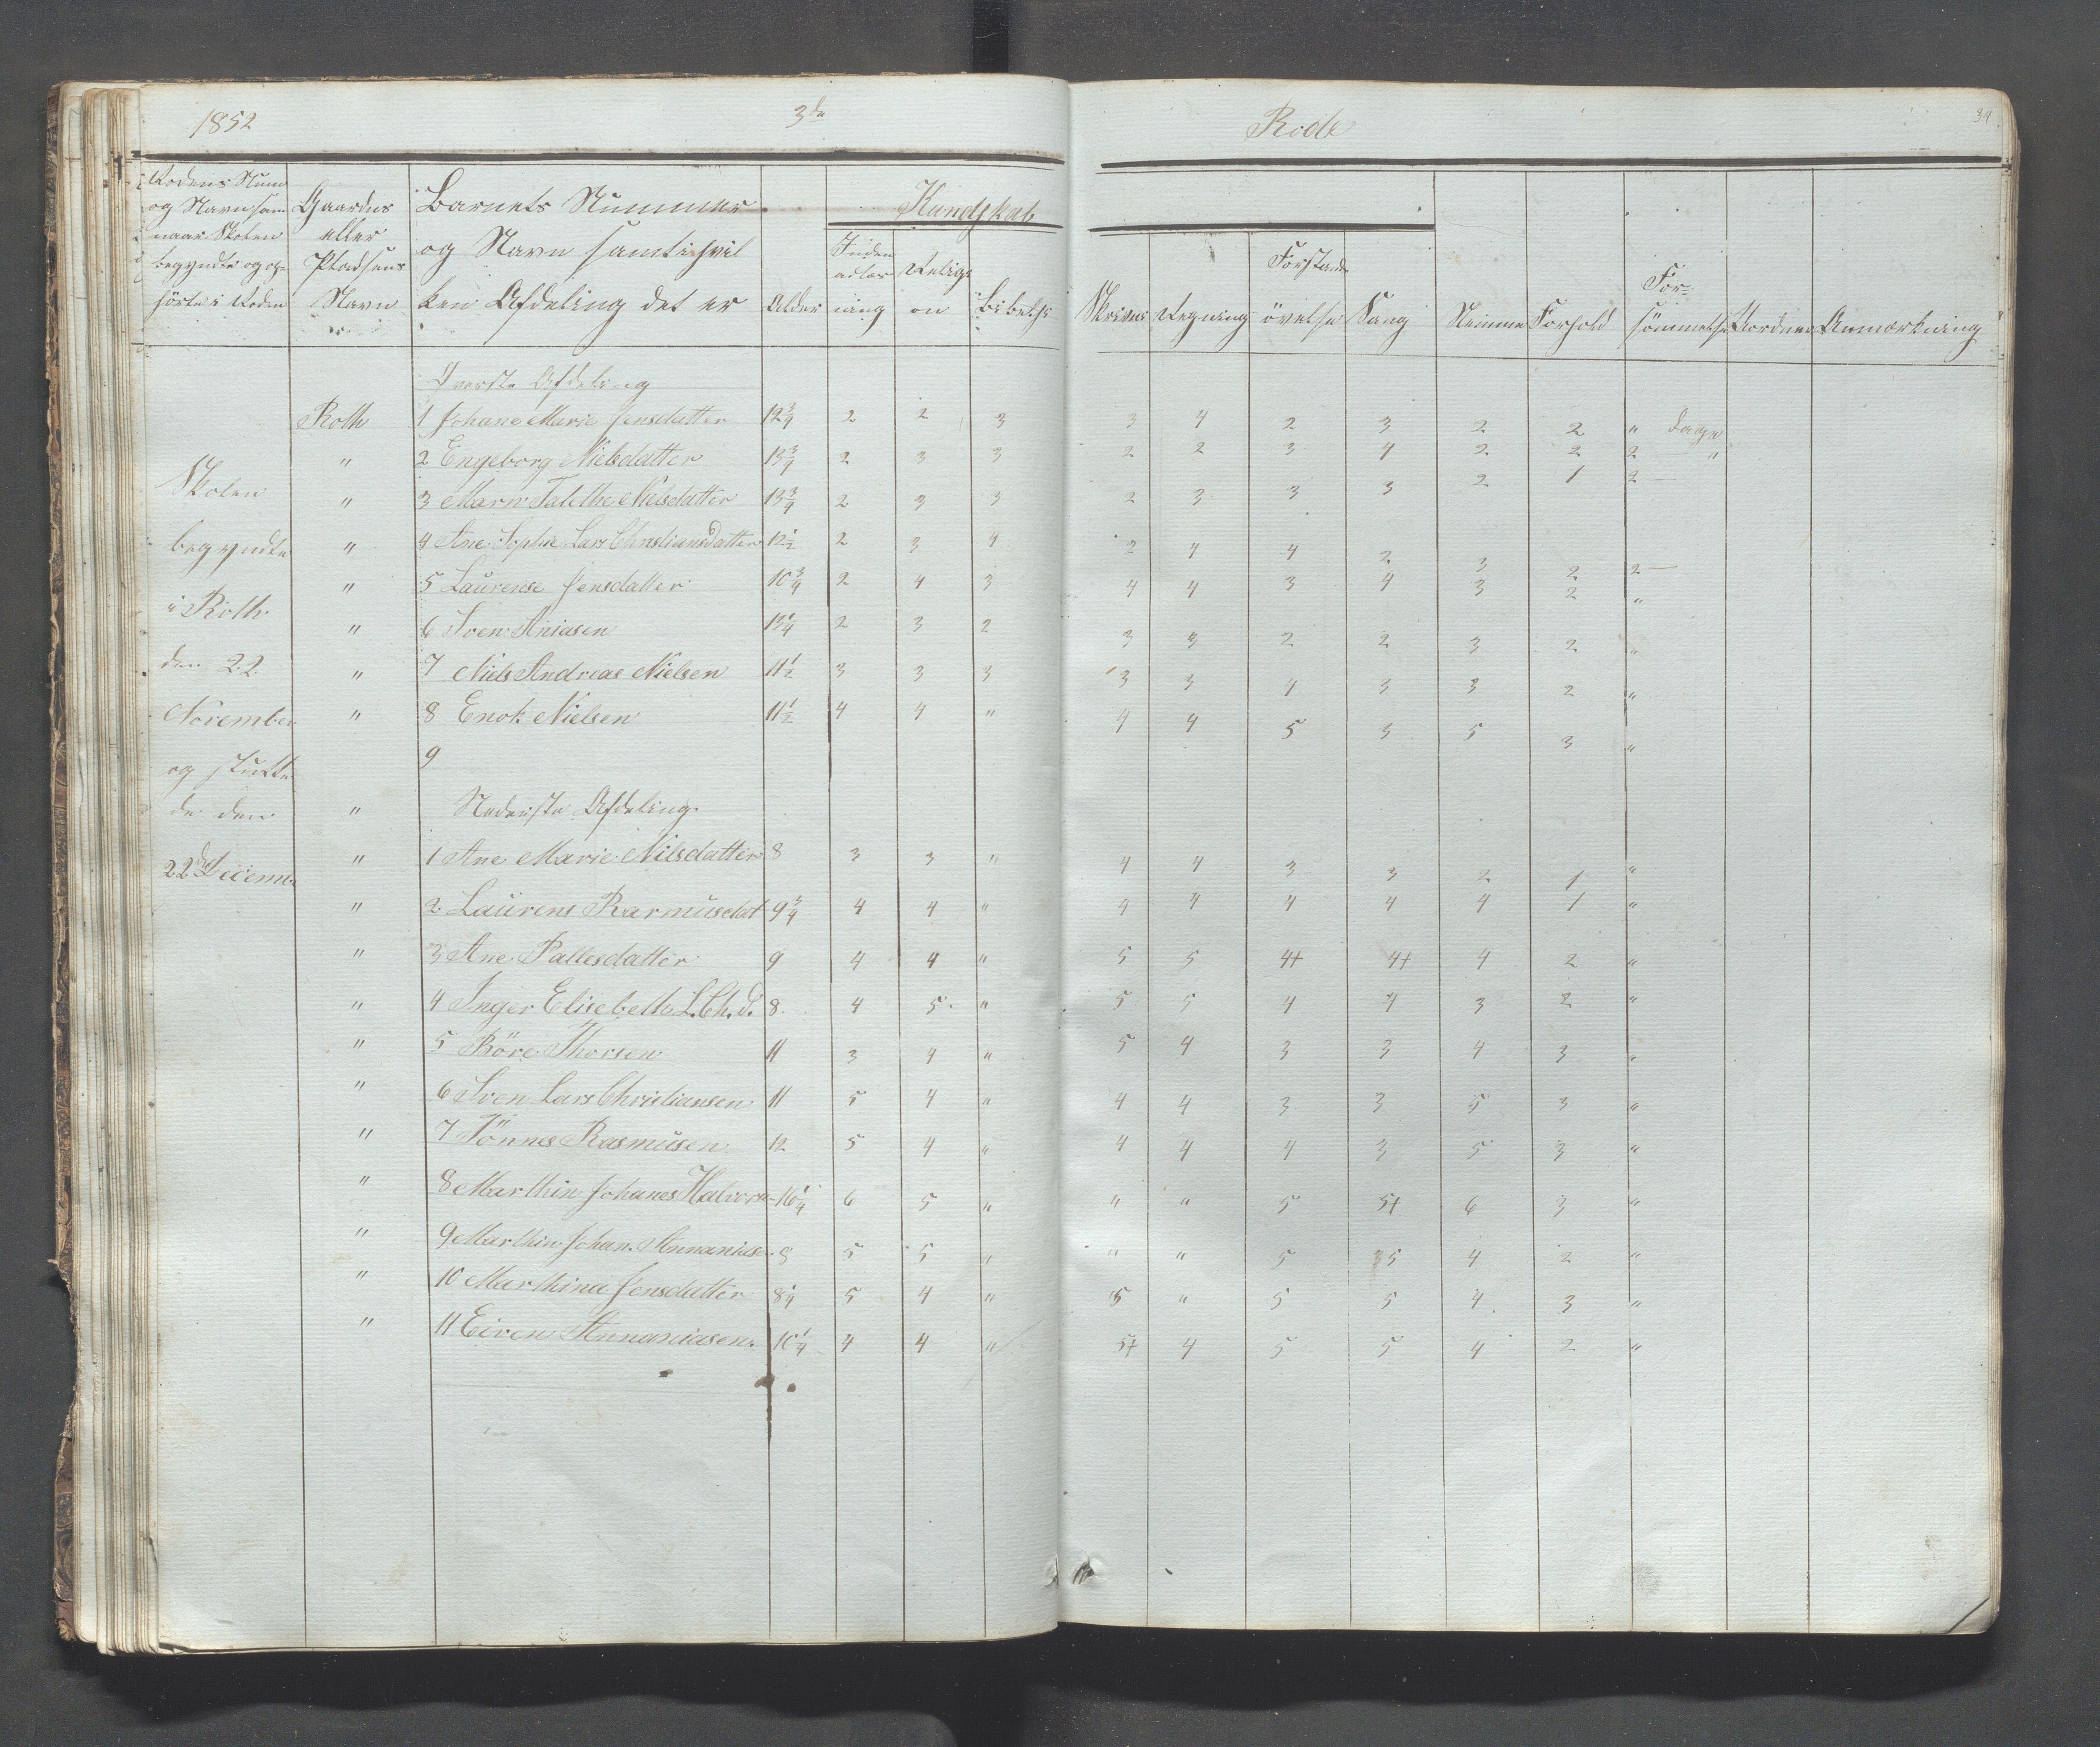 1852 3de Rode 34
Rodens Num og Navn sam naar Skolen begyndte og op hörte i Roden
Gaardens eller Pladsens Navn
Barnets Nummer og Navn samt i hvil ken Afdeling det er
Alder
Kundskab
Inden adlæs ning
Religi on
Bibelhi
Skrivni
Regning
Forstands övelse
Sang
Nemme
Forhold
For= sömmelse
Uorden
Anmærkning
Skolen begyndte i Roth den 22 November og slutte de den 22de Decemb.
Överste Afdeling
Roth 1 Johane Marie Jensdatter 12 3/4 2 2 3 3 4 2 3 2 2 " Dage
" 2 Engeborg Nielsdatter 13 3/4 2 3 3 2 2 3 4 2 2 2 — "
" 3 Maren Talethe Nielsdatter 13 3/4 2 3 3 2 3 3 3 2 1 2 —
" 4 Ane Sophie Lars Christiansdatter 12 1/2 2 3 4 2 4 4 2 3 2 2 —
" 5 Laurense Jensdatter 10 3/4 2 4 3 4 4 3 4 3 2 "
" 6 Sven Aniasen 13 1/4 2 3 2 3 3 2 2 3 2 "
" 7 Niels Andreas Nielsen 11 1/2 3 3 3 3 3 4 3 3 2 "
" 8 Enok Nielsen 11 1/2 4 4 " 4 4 5 3 5 3 "
9
" Nederste Afdeling.
" 1 Ane Marie Nilsdatter 8 3 3 " 4 4 3 3 2 1 "
" 2 Laurens Rasmusdat 9 3/4 4 4 " 4 4 4 4 4 1 "
" 3 Ane Pallesdatter 9 4 4 " 5 5 4+ 4+ 4 2 "
" 4 Inger Elisebeth L.Ch.d. 8. 4 5. " 5 5 4 4 3 2 "
" 5 Böre Thorsen 11 3 4 " 5 4 3 3 4 3 "
" 6 Sven Lars Christiansen 11 5 4 " 4 4 3 3 5 3 "
" 7 Tönnes Rasmusen 12 5 4 " 4 4 4 3 5 3 "
" 8 Marthin Johanes Halvors- 16 1/4 6 5 " " " 5 5+ 6 3 "
" 9 Marthin Johan. Annanias- 9 5 5 " " " 5 5 4 2 "
" 10 Marthina Jensdatter 8 1/4 5 4 " 5 " 5 5 4 3 "
" 11 Eiven Annaniasen. 10 1/4 4 4 " 5+ 4 5 5 4 2 "